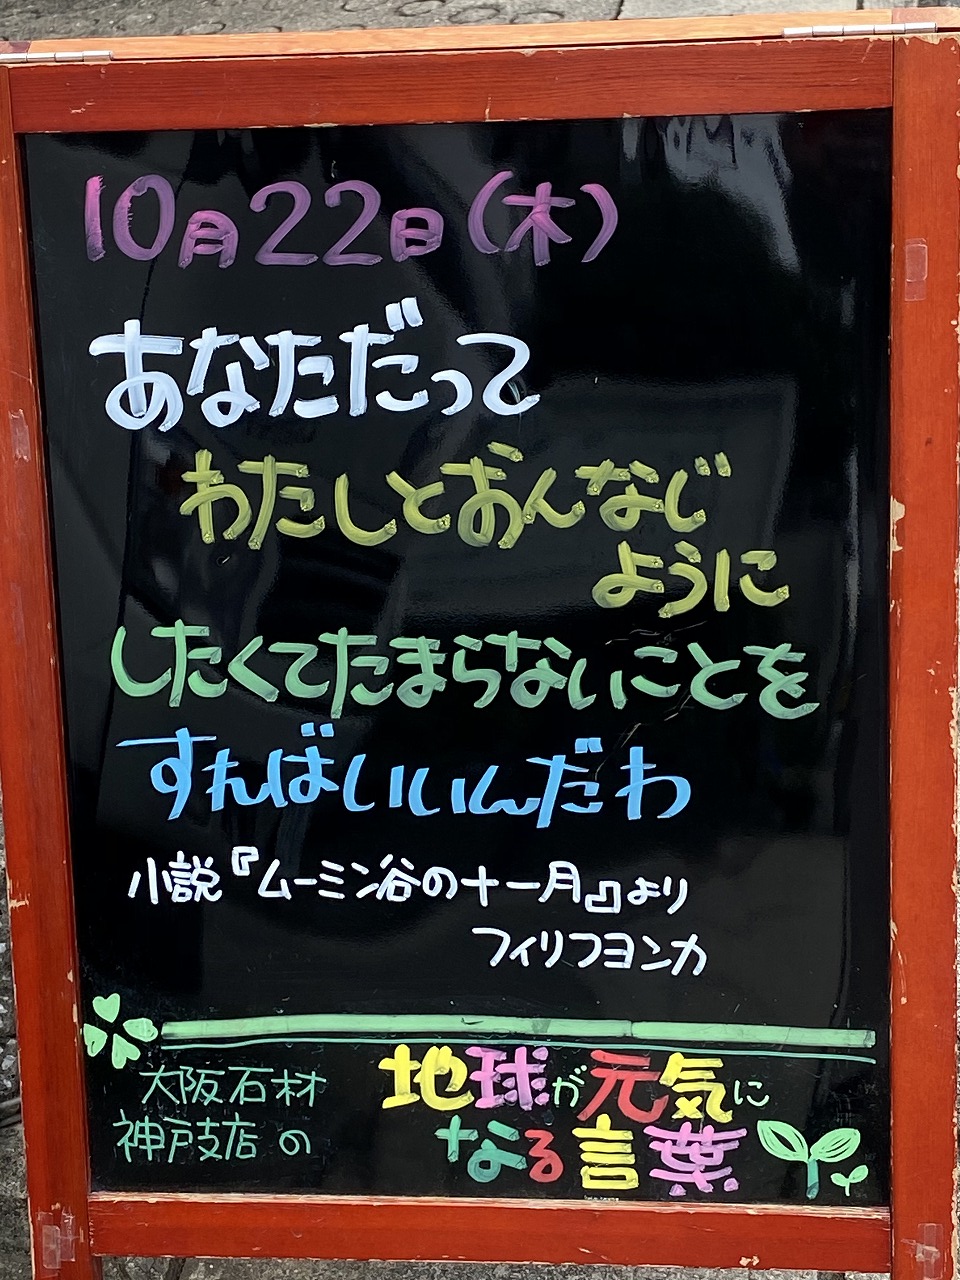 10月22日(木)
あなただって
わたしとおんなじ
ように
したくてたまらないことを
すればいいんだわ
小説『ムーミン谷の十一月』より
フィリフヨンカ
大阪石材
神戸支店の
地球が元気に
なる言葉